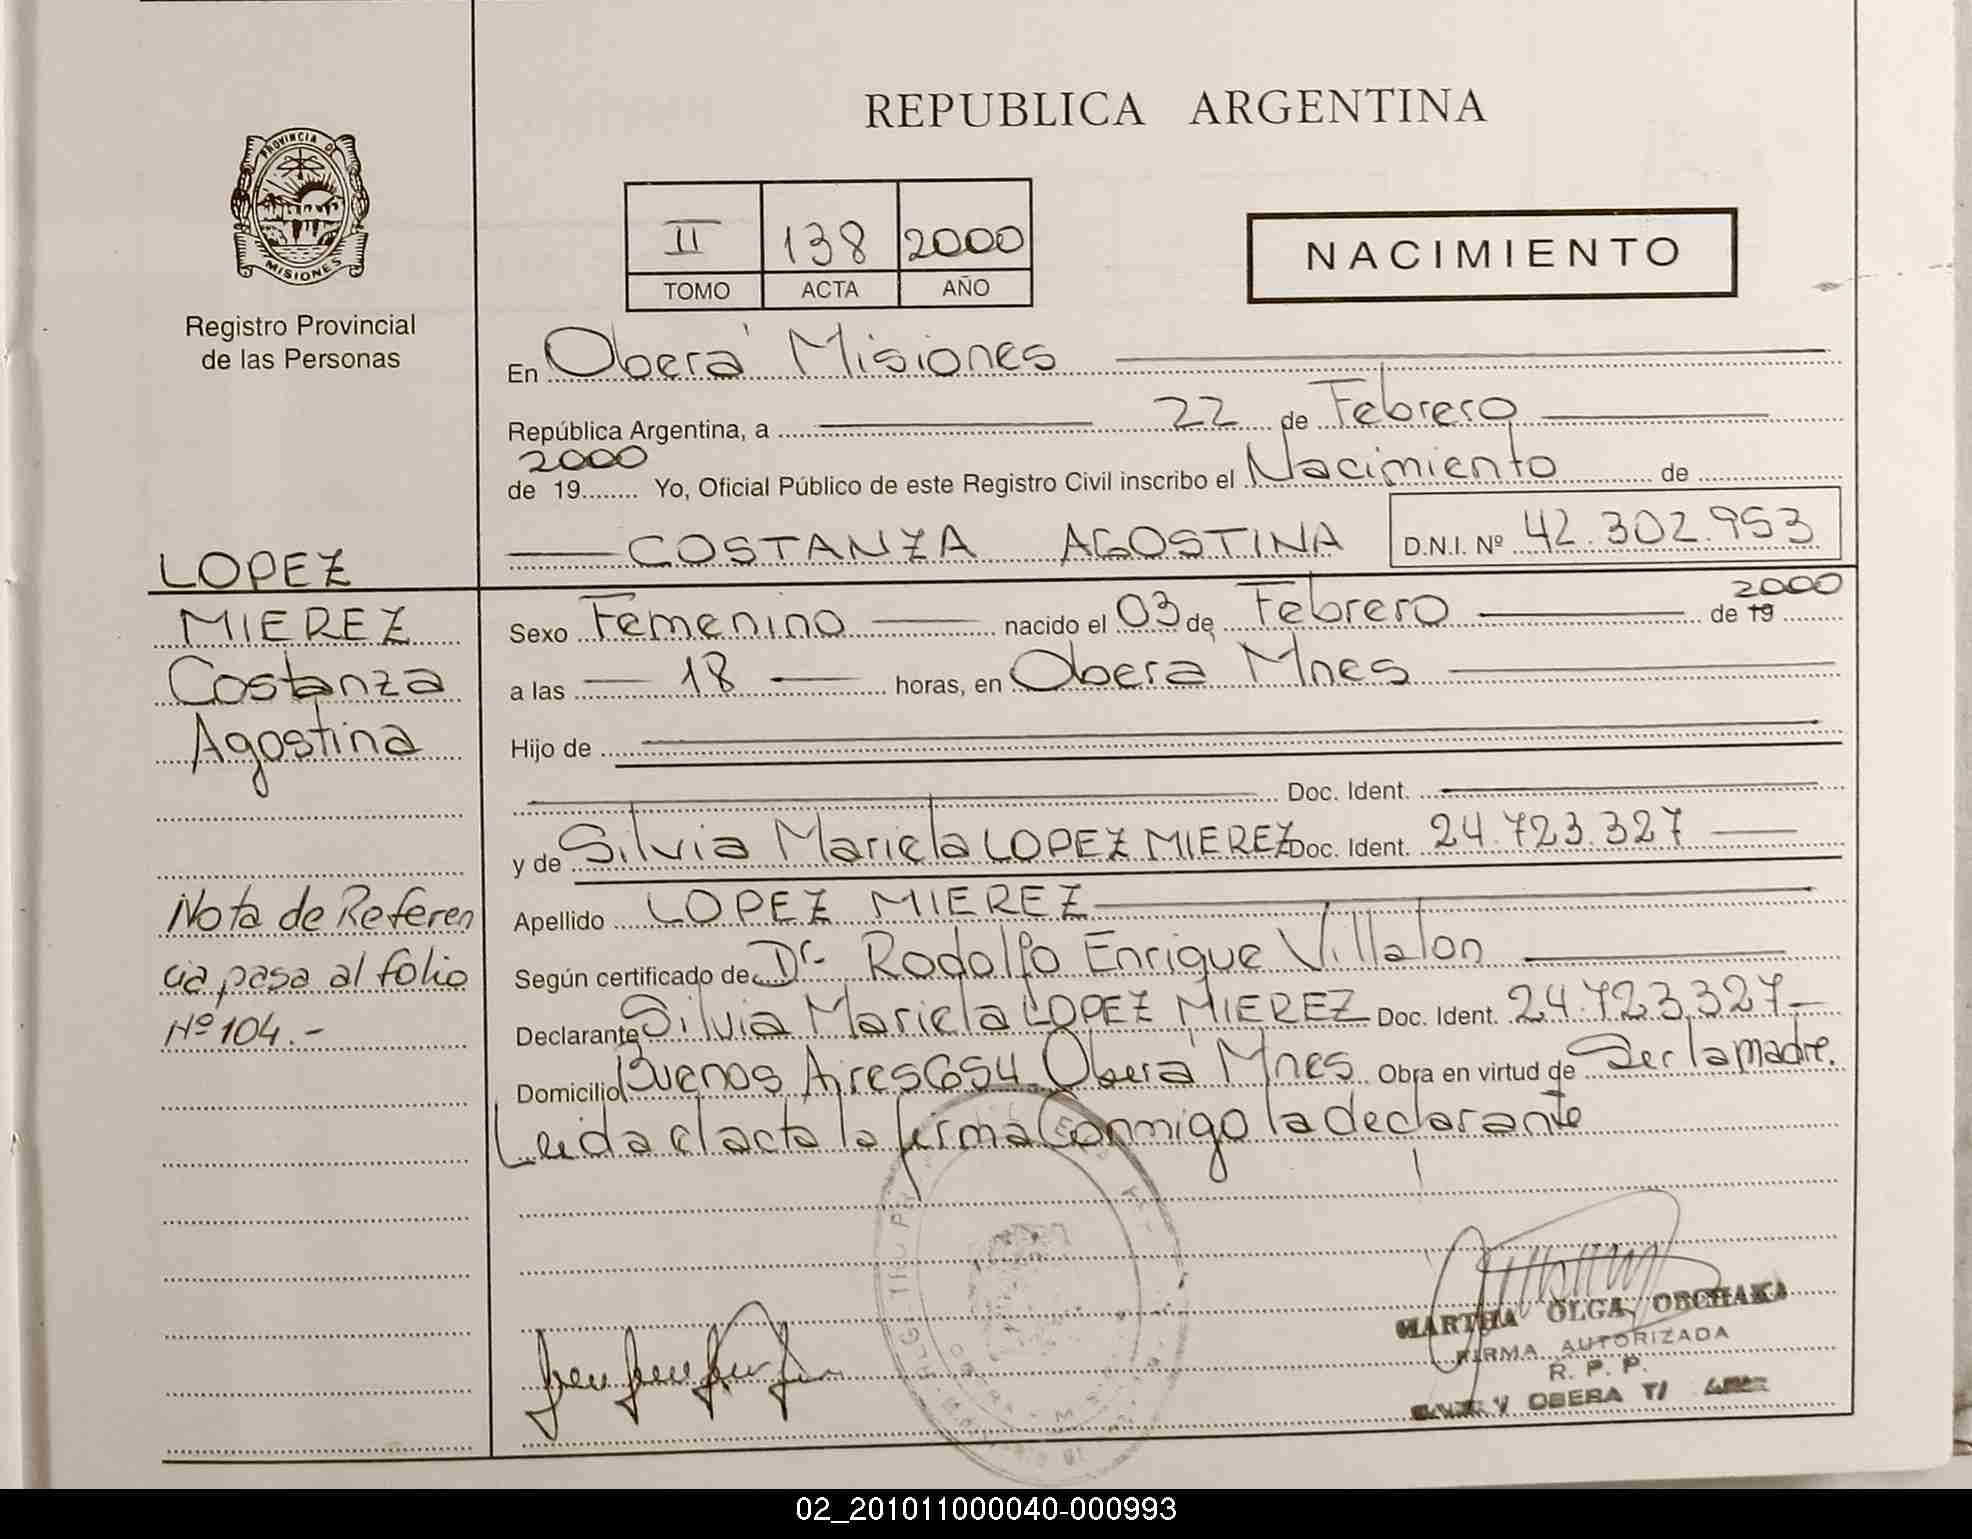 REPUBLICA ARGENTINA
PROVINCIA DE
MISIONES
Registro Provincial
de las Personas
II 138 2000
TOMO ACTA AÑO
NACIMIENTO
En Obera' Misiones
República Argentina, a 22 de Febrero
2000
de 19........ Yo, Oficial Público de este Registro Civil inscribo el Nacimiento de
COSTANZA AGOSTINA D.N.I. Nº 42.302.953
LOPEZ
MIEREZ
Costanza
Agostina
Nota de Referen
cia pasa al folio
Nº 104.-
2000
Sexo Femenino nacido el 03 de Febrero de 19
a las 18 horas, en Obera' Mnes
Hijo de
Doc. Ident.
y de Silvia Mariela LOPEZ MIEREZ Doc. Ident. 24.723.327
Apellido LOPEZ MIEREZ
Según certificado de Dr. Rodolfo Enrique Villalon
Declarante Silvia Mariela LOPEZ MIEREZ Doc. Ident. 24.723.327
Domicilio Buenos Aires 654 Obera' Mnes Obra en virtud de Ser la madre.
Leida el acta la firma Conmigo la declarante
MARTHA OLGA OBCHAKA
FIRMA AUTORIZADA
R. P. P.
OBERA
02_201011000040-000993